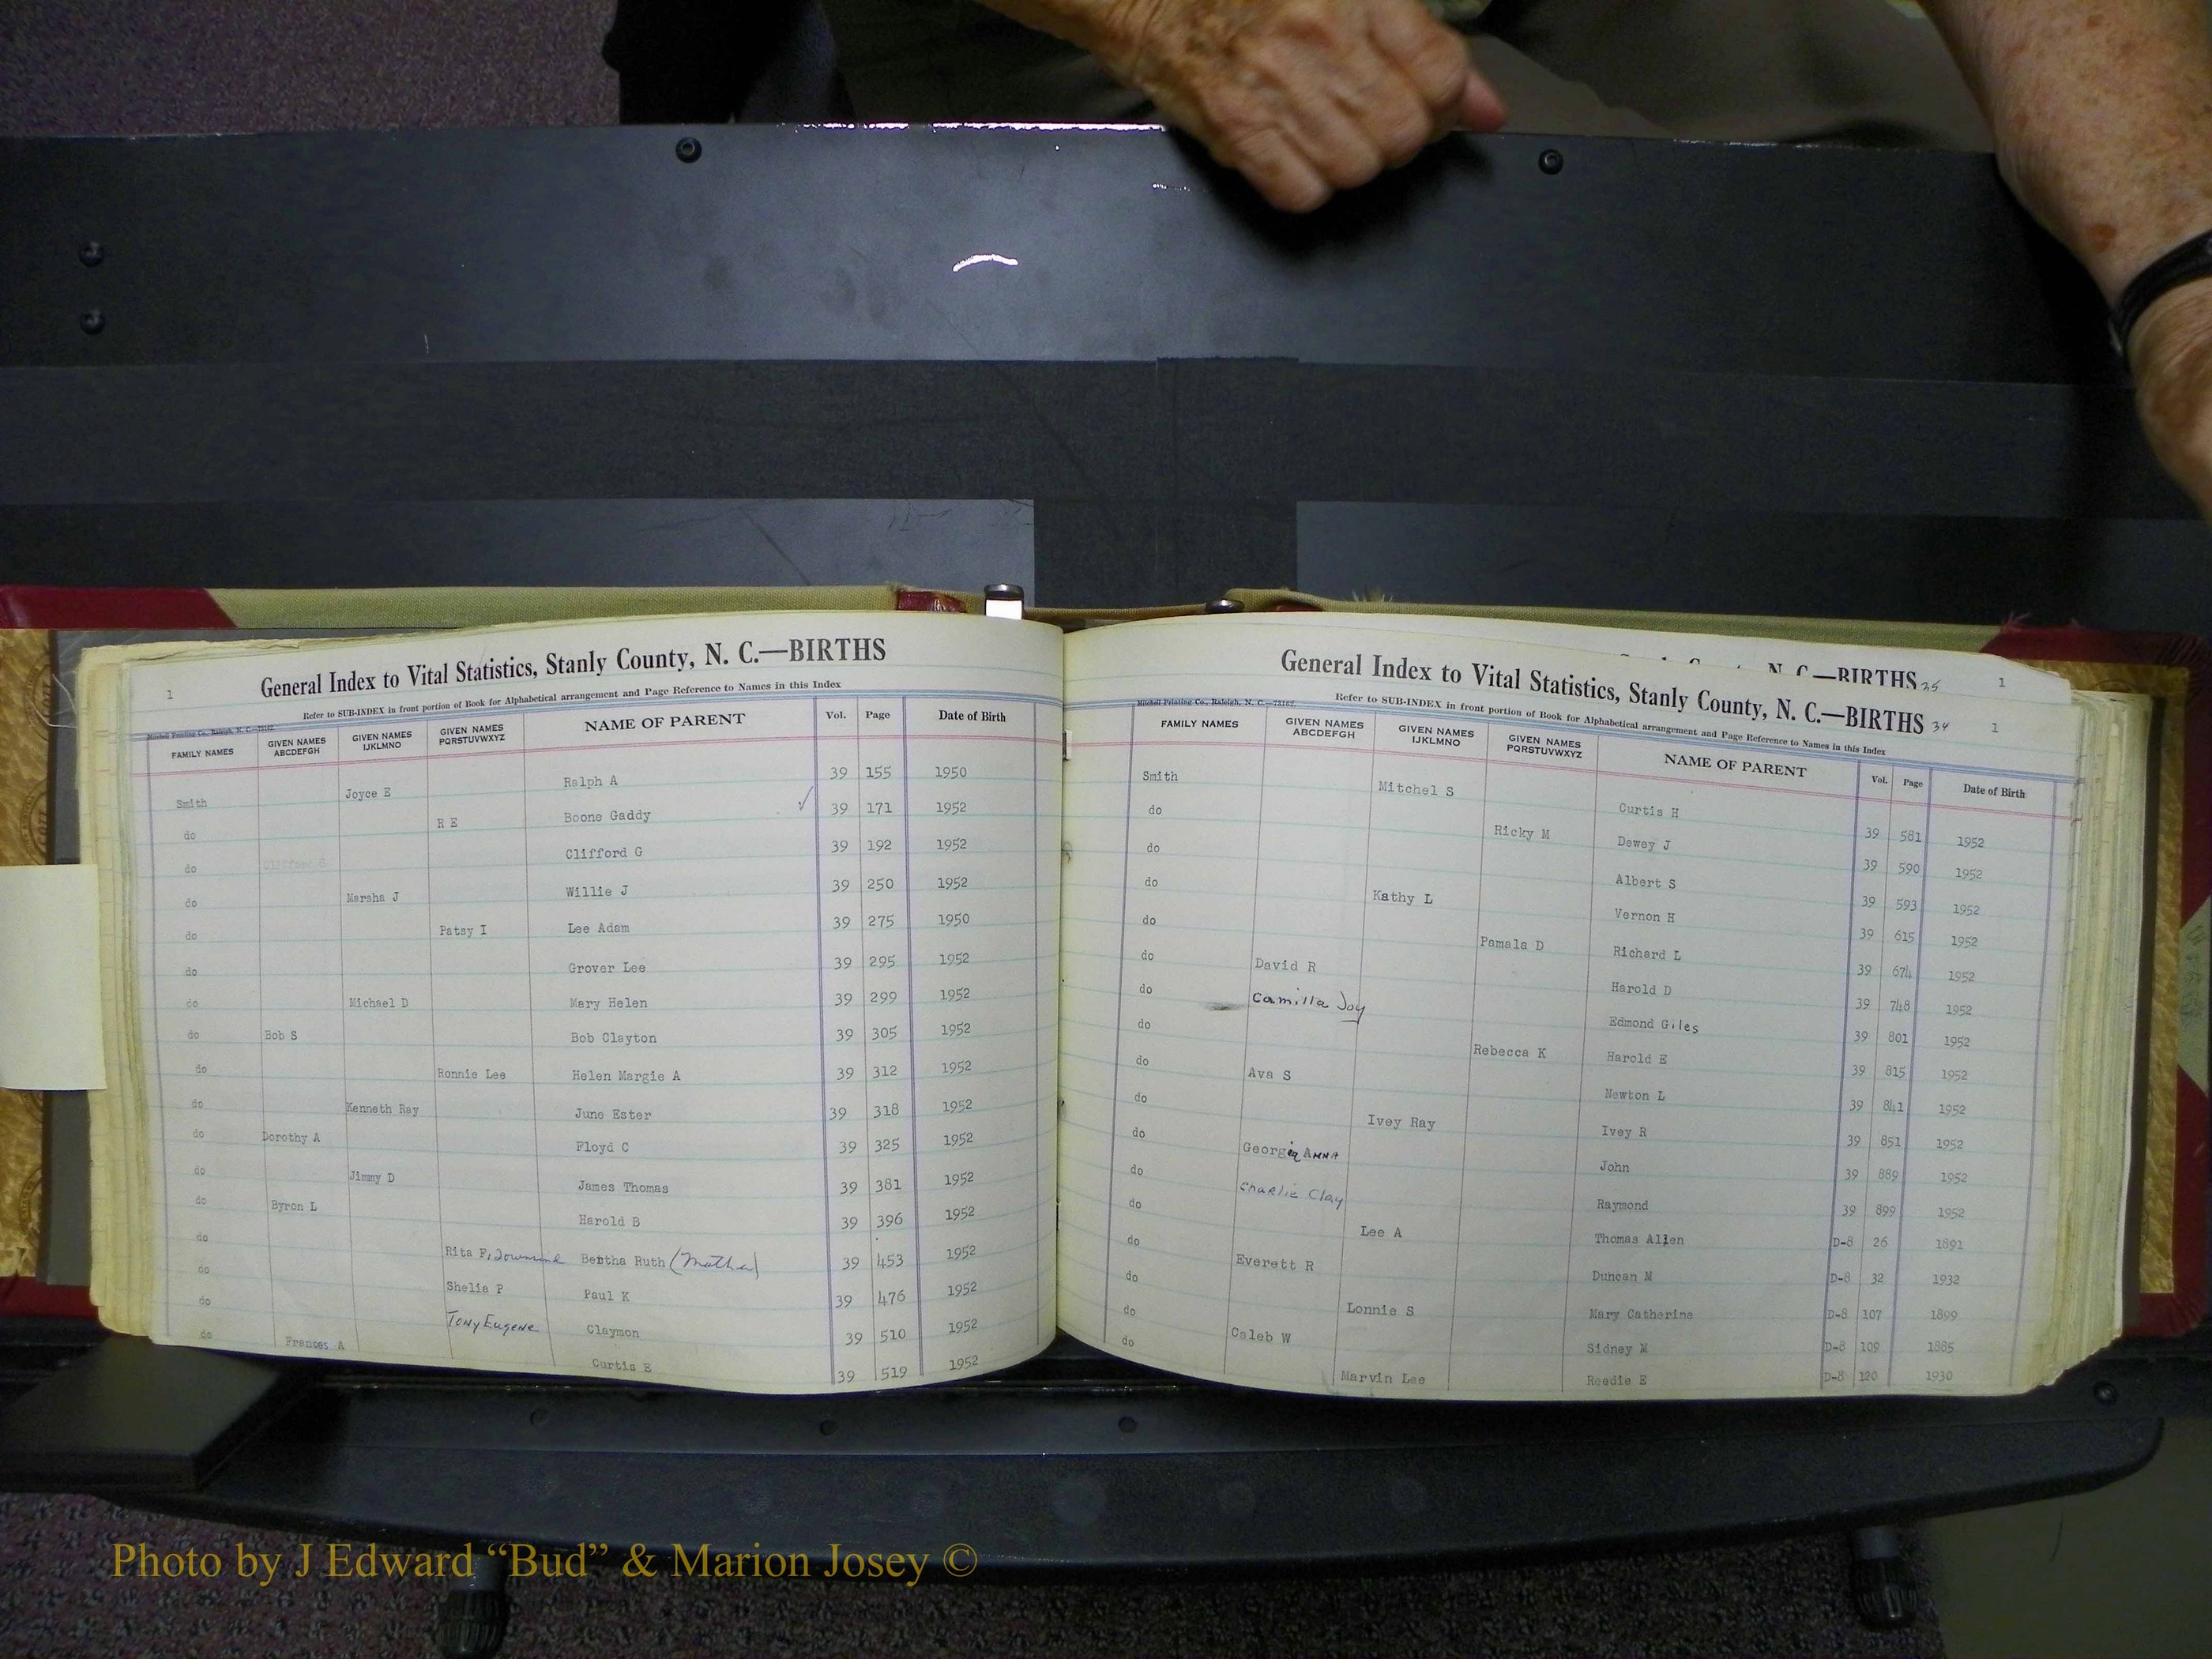 General Index to Vital Statistics, Stanly County, N. C.—BIRTHS
1
Refer to SUB-INDEX in front portion of Book for Alphabetical arrangement and Page Reference to Names in this Index
Mitchell Printing Co., Raleigh, N. C.
FAMILY NAMES GIVEN NAMES ABCDEFGH GIVEN NAMES IJKLMNO GIVEN NAMES PQRSTUVWXYZ NAME OF PARENT Vol. Page Date of Birth
Smith Joyce E Ralph A 39 155 1950
do R E Boone Gaddy ✓ 39 171 1952
do Clifford G Clifford G 39 192 1952
do Marsha J Willie J 39 250 1952
do Patsy I Lee Adam 39 275 1950
do Grover Lee 39 295 1952
do Michael D Mary Helen 39 299 1952
do Bob S Bob Clayton 39 305 1952
do Ronnie Lee Helen Margie A 39 312 1952
do Kenneth Ray June Ester 39 318 1952
do Dorothy A Floyd C 39 325 1952
do Jimmy D James Thomas 39 381 1952
do Byron L Harold B 39 396 1952
do Rita F, Bertha Ruth (Mother) 39 453 1952
do Shelia P Paul K 39 476 1952
do Tony Eugene Claymon 39 510 1952
do Frances A Curtis E 39 519 1952
N. C.—BIRTHS 35 1
General Index to Vital Statistics, Stanly County, N. C.—BIRTHS 34 1
Refer to SUB-INDEX in front portion of Book for Alphabetical arrangement and Page Reference to Names in this Index
Mitchell Printing Co., Raleigh, N. C.
FAMILY NAMES GIVEN NAMES ABCDEFGH GIVEN NAMES IJKLMNO GIVEN NAMES PQRSTUVWXYZ NAME OF PARENT Vol. Page Date of Birth
Smith Mitchel S Curtis H 39 581 1952
do Ricky M Dewey J 39 590 1952
do Albert S 39 593 1952
do Kathy L Vernon H 39 615 1952
do Pamala D Richard L 39 674 1952
do David R Harold D 39 748 1952
do Camilla Joy Edmond Giles 39 801 1952
do Rebecca K Harold E 39 815 1952
do Ava S Newton L 39 841 1952
do Ivey Ray Ivey R 39 851 1952
do Georgia Anna John 39 889 1952
do Charlie Clay Raymond 39 899 1952
do Lee A Thomas Allen D-8 26 1891
do Everett R Duncan M D-8 32 1932
do Lonnie S Mary Catherine D-8 107 1899
do Caleb W Sidney M D-8 109 1885
do Marvin Lee Reedie E D-8 120 1930
Photo by J Edward “Bud” & Marion Josey ©